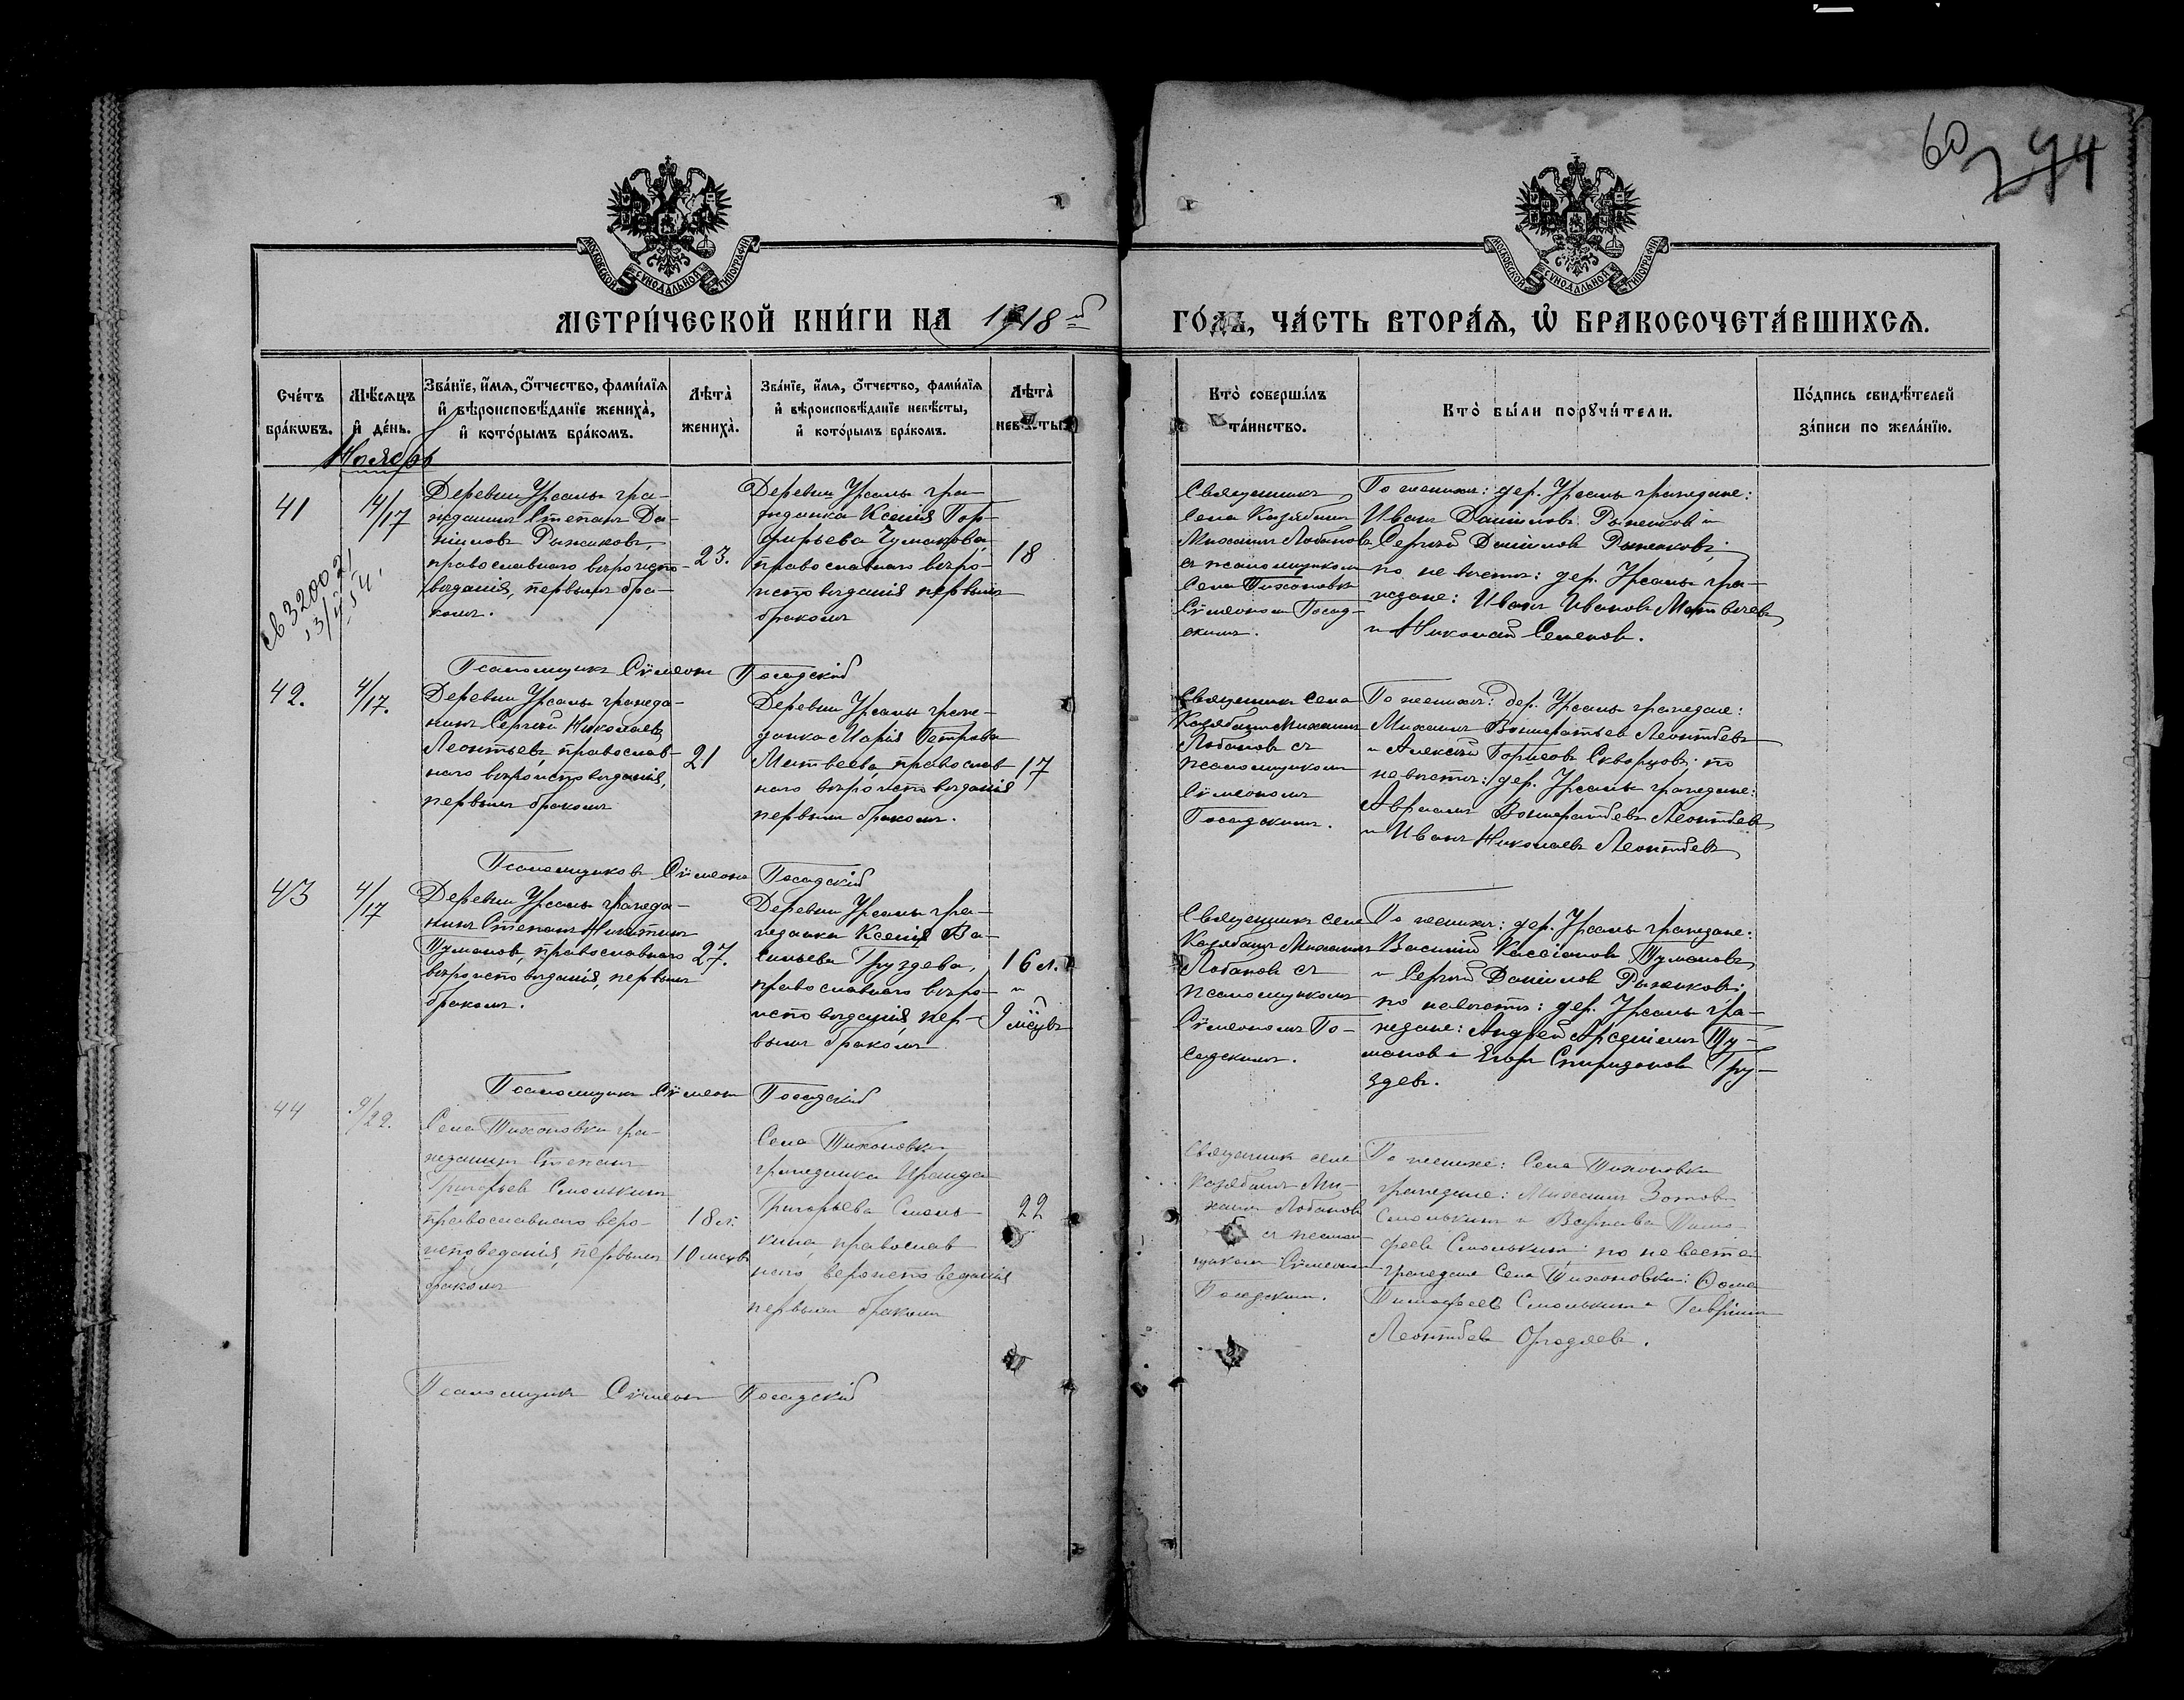 60
274
МОСКОВСКОЙ СѴНОДАЛЬНОЙ ТИПОГРАФІИ
МОСКОВСКОЙ СѴНОДАЛЬНОЙ ТИПОГРАФІИ
МЕТРИ́ЧЕСКОЙ КНИ́ГИ НА 1918й ГО́ДЪ, ЧА́СТЬ ВТОРА́Ѧ, Ѽ БРАКОСОЧЕТА́ВШИХСѦ.
Сче́тъ бра́кѡвъ.
Мѣ́сѧцъ и҆ де́нь.
Зва́нїе, и҆́мѧ, ѻ҆́тчество, фами́лїѧ
и҆ вѣроисповѣ́данїе жениха̀,
и҆ кото́рымъ бра́комъ.
Лѣта̀ жениха̀.
Зва́нїе, и҆́мѧ, ѻ҆́тчество, фами́лїѧ
и҆ вѣроисповѣ́данїе невѣ́сты,
и҆ кото́рымъ бра́комъ.
Лѣта̀ невѣ́сты.
Кто̀ соверша́лъ та́инство.
Кто̀ бы́ли порꙋчи́тели.
По́дпись свидѣ́телей за́писи по жела́нїю.
Ноябрь
41
4/17
Деревни Урсалы гра-
жданинъ Степанъ Да-
ніиловъ Рыжиковъ,
православнаго вѣроиспо-
вѣданія, первымъ бра-
комъ.
23.
Деревни Урсалы гра-
жданка Ксенія Пор-
фирьева Чумакова,
православнаго вѣро-
исповѣданія первымъ
бракомъ
18
Священникъ
села Казябашъ
Михаилъ Лобановъ
съ псаломщикомъ
села Тихоновки
Сѵмеономъ Посад-
скимъ.
По женихѣ: дер. Урсалы граждане:
Иванъ Даніиловъ Рыжиковъ и
Сергѣй Даніиловъ Рыжиковъ;
по невѣстѣ: дер. Урсалы гра-
ждане: Иванъ Ивановъ Матвѣевъ
и Николай Семеновъ.
Псаломщикъ Сѵмеонъ Посадскій
42.
4/17.
Деревни Урсалы гражда-
нинъ Сергѣй Николаевъ
Леонтьевъ, православ-
наго вѣроисповѣданія,
первымъ бракомъ
21
Деревни Урсалы граж-
данка Марія Петрова
Матвеева, православ-
наго вѣроисповѣданія
первымъ бракомъ.
17
Священникъ села
Казябашъ Михаилъ
Лобановъ съ
псаломщикомъ
Сѵмеономъ
Посадскимъ.
По женихѣ: дер. Урсалы граждане:
Михаилъ Леонтьевъ
и Алексѣй Борисовъ Скворцовъ; по
невѣстѣ: дер. Урсалы граждане:
Авраамъ Леонтьевъ
и Иванъ Николаевъ Леонтьевъ
Псаломщикъ Сѵмеонъ Посадскій
43
4/17
Деревни Урсалы гражда-
нинъ Степанъ Никитинъ
Тумановъ, православнаго
вѣроисповѣданія, первымъ
бракомъ.
27.
Деревни Урсалы гра-
жданка Ксенія Ва-
сильева Груздева,
православнаго вѣро-
исповѣданія, пер-
вымъ бракомъ
16 л.
и
9 мѣсцвъ
Священникъ села
Казябашъ Михаилъ
Лобановъ съ
псаломщикомъ
Сѵмеономъ По-
садскимъ.
По женихѣ: дер. Урсалы граждане:
Василій Кассіановъ Тумановъ
и Сергѣй Даніиловъ Рыжиковъ;
по невѣстѣ: дер. Урсалы гра-
ждане: Андрей Арсеніевъ Ту-
мановъ и Егоръ Спиридоновъ Гру-
здевъ.
Псаломщикъ Сѵмеонъ Посадскій
44
9/22.
Села Тихоновки гра-
жданинъ Степанъ
Григорьевъ Смолькинъ
православнаго веро-
исповеданія, первымъ
бракомъ
18 л.
10 месцвъ
Села Тихоновки
гражданка Ираида
Григорьева Смоль-
кина, православ
наго вероисповеданія
первымъ бракомъ
22
Священникъ села
Казябашъ Ми-
хаилъ Лобановъ
съ псалом-
щикомъ Сѵмеономъ
Посадскимъ.
По женихе: Села Тихоновки
граждане: Михаилъ Зотовъ
Смолькинъ и Тимо
феевъ Смолькинъ; по невесте
граждане Села Тихоновки: Ѳома
Тимофеевъ Смолькинъ и Гавріилъ
Леонтьевъ
Псаломщикъ Сѵмеонъ Посадскій